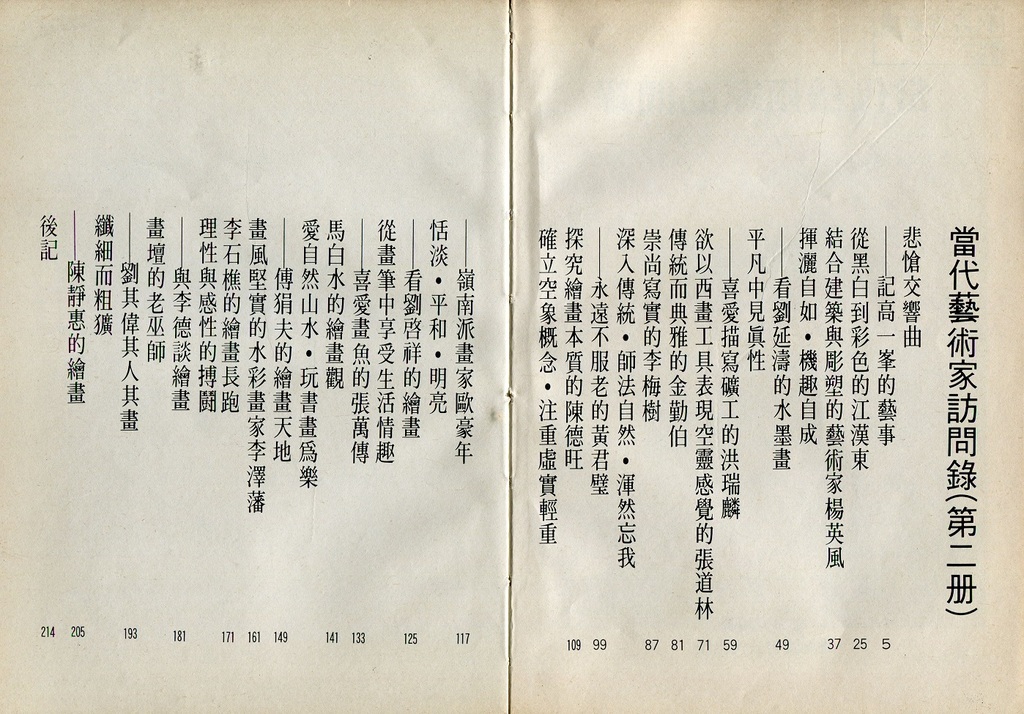 當代藝術家訪問錄(第二册)
悲愴交響曲
——記高一峯的藝事 5
從黑白到彩色的江漢東 25
結合建築與彫塑的藝術家楊英風 37
揮灑自如·機趣自成
——看劉延濤的水墨畫 49
平凡中見眞性
——喜愛描寫礦工的洪瑞麟 59
欲以西畫工具表現空靈感覺的張道林 71
傳統而典雅的金勤伯 81
崇尚寫實的李梅樹 87
深入傳統·師法自然·渾然忘我
——永遠不服老的黃君璧 99
探究繪畫本質的陳德旺 109
確立空象概念·注重虛實輕重
——嶺南派畫家歐豪年 117
恬淡·平和·明亮
——看劉啓祥的繪畫 125
從畫筆中享受生活情趣
——喜愛畫魚的張萬傳 133
馬白水的繪畫觀 141
愛自然山水·玩書畫爲樂
——傅狷夫的繪畫天地 149
畫風堅實的水彩畫家李澤藩 161
李石樵的繪畫長跑 171
理性與感性的搏鬪
——與李德談繪畫 181
畫壇的老巫師
——劉其偉其人其畫 193
纖細而粗獷
——陳靜惠的繪畫 205
後記 214